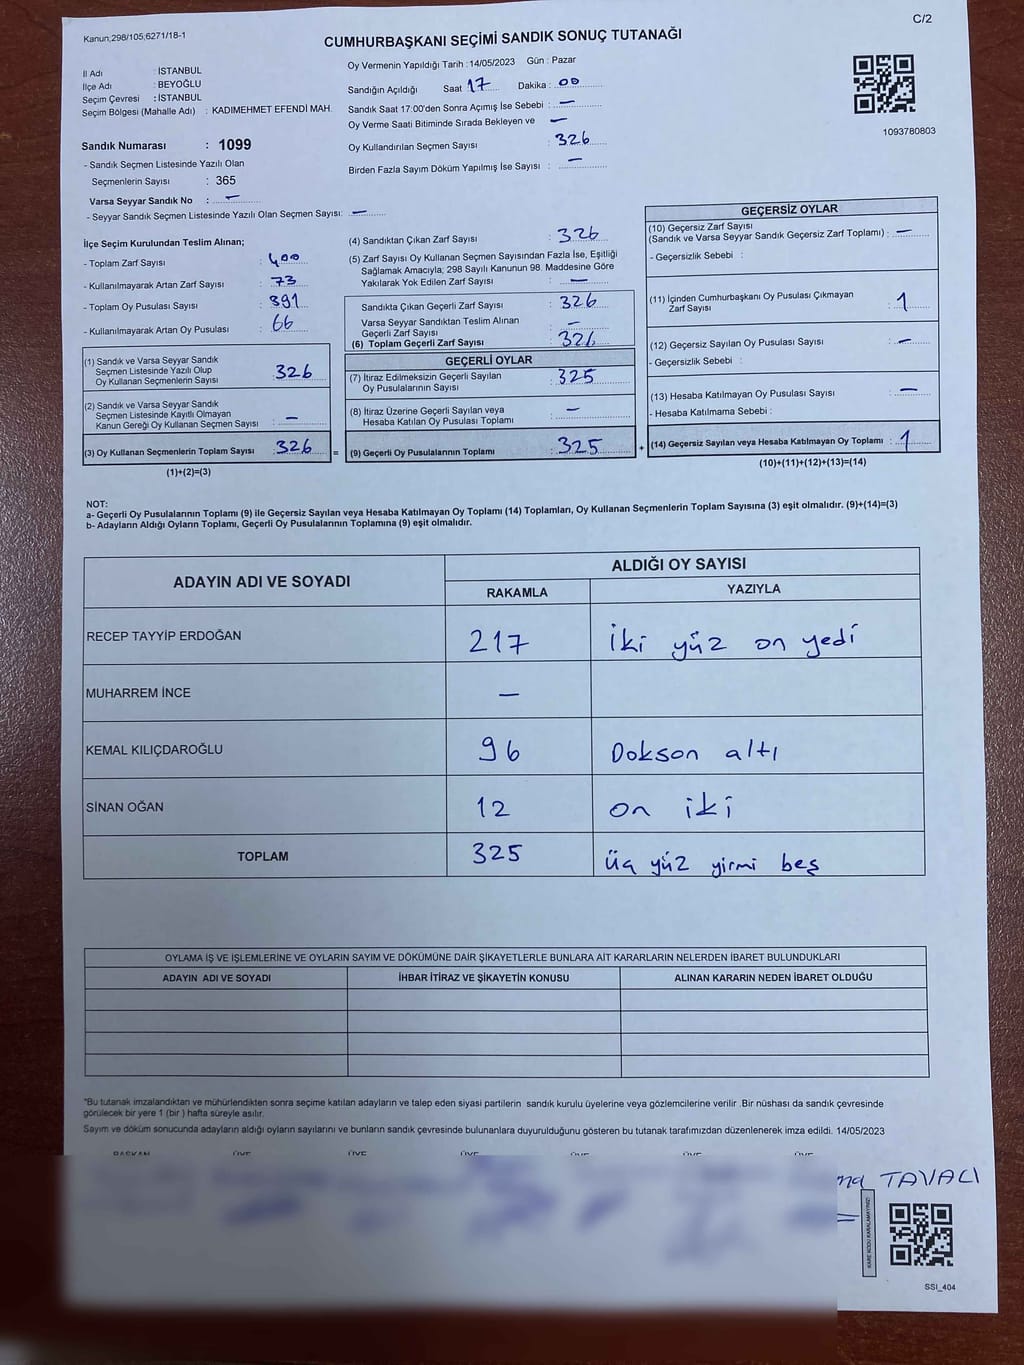 C/2
Kanun;298/105;6271/18-1
CUMHURBAŞKANI SEÇİMİ SANDIK SONUÇ TUTANAĞI
İl Adı : İSTANBUL
İlçe Adı : BEYOĞLU
Seçim Çevresi : İSTANBUL
Seçim Bölgesi (Mahalle Adı) : KADIMEHMET EFENDİ MAH.
Oy Vermenin Yapıldığı Tarih : 14/05/2023 Gün : Pazar
Sandığın Açıldığı Saat 17 Dakika : 00
Sandık Saat 17:00'den Sonra Açımış İse Sebebi : —
Oy Verme Saati Bitiminde Sırada Bekleyen ve —
Oy Kullandırılan Seçmen Sayısı : 326
Birden Fazla Sayım Döküm Yapılmış İse Sayısı : —
1093780803
Sandık Numarası : 1099
- Sandık Seçmen Listesinde Yazılı Olan
Seçmenlerin Sayısı : 365
Varsa Seyyar Sandık No : —
- Seyyar Sandık Seçmen Listesinde Yazılı Olan Seçmen Sayısı: —
İlçe Seçim Kurulundan Teslim Alınan;
- Toplam Zarf Sayısı : 400
- Kullanılmayarak Artan Zarf Sayısı : 73
- Toplam Oy Pusulası Sayısı : 391
- Kullanılmayarak Artan Oy Pusulası : 66
(1) Sandık ve Varsa Seyyar Sandık
Seçmen Listesinde Yazılı Olup
Oy Kullanan Seçmenlerin Sayısı 326
(2) Sandık ve Varsa Seyyar Sandık
Seçmen Listesinde Kayıtlı Olmayan
Kanun Gereği Oy Kullanan Seçmen Sayısı : —
(3) Oy Kullanan Seçmenlerin Toplam Sayısı : 326
(1)+(2)=(3)
(4) Sandıktan Çıkan Zarf Sayısı : 326
(5) Zarf Sayısı Oy Kullanan Seçmen Sayısından Fazla İse, Eşitliği
Sağlamak Amacıyla; 298 Sayılı Kanunun 98. Maddesine Göre
Yakılarak Yok Edilen Zarf Sayısı : —
Sandıkta Çıkan Geçerli Zarf Sayısı : 326
Varsa Seyyar Sandıktan Teslim Alınan
Geçerli Zarf Sayısı : —
(6) Toplam Geçerli Zarf Sayısı : 326
GEÇERLİ OYLAR
(7) İtiraz Edilmeksizin Geçerli Sayılan
Oy Pusulalarının Sayısı : 325
(8) İtiraz Üzerine Geçerli Sayılan veya
Hesaba Katılan Oy Pusulası Toplamı : —
= (9) Geçerli Oy Pusulalarının Toplamı : 325
GEÇERSİZ OYLAR
(10) Geçersiz Zarf Sayısı
(Sandık ve Varsa Seyyar Sandık Geçersiz Zarf Toplamı) : —
- Geçersizlik Sebebi :
(11) İçinden Cumhurbaşkanı Oy Pusulası Çıkmayan
Zarf Sayısı : 1
(12) Geçersiz Sayılan Oy Pusulası Sayısı : —
- Geçersizlik Sebebi :
(13) Hesaba Katılmayan Oy Pusulası Sayısı : —
- Hesaba Katılmama Sebebi :
+ (14) Geçersiz Sayılan veya Hesaba Katılmayan Oy Toplamı : 1
(10)+(11)+(12)+(13)=(14)
NOT:
a- Geçerli Oy Pusulalarının Toplamı (9) ile Geçersiz Sayılan veya Hesaba Katılmayan Oy Toplamı (14) Toplamları, Oy Kullanan Seçmenlerin Toplam Sayısına (3) eşit olmalıdır. (9)+(14)=(3)
b- Adayların Aldığı Oyların Toplamı, Geçerli Oy Pusulalarının Toplamına (9) eşit olmalıdır.
ADAYIN ADI VE SOYADI ALDIĞI OY SAYISI
RAKAMLA YAZIYLA
RECEP TAYYİP ERDOĞAN 217 İki yüz on yedi
MUHARREM İNCE —
KEMAL KILIÇDAROĞLU 96 Dokson altı
SİNAN OĞAN 12 on iki
TOPLAM 325 üç yüz yirmi beş
OYLAMA İŞ VE IŞLEMLERİNE VE OYLARIN SAYIM VE DÖKÜMÜNE DAİR ŞİKAYETLERLE BUNLARA AİT KARARLARIN NELERDEN İBARET BULUNDUKLARI
ADAYIN ADI VE SOYADI İHBAR İTİRAZ VE ŞİKAYETİN KONUSU ALINAN KARARIN NEDEN İBARET OLDUĞU
*Bu tutanak imzalandıktan ve mühürlendikten sonra seçime katılan adayların ve talep eden siyasi partilerin sandık kurulu üyelerine veya gözlemcilerine verilir .Bir nüshası da sandık çevresinde
görülecek bir yere 1 (bir ) hafta süreyle asılır.
Sayım ve döküm sonucunda adayların aldığı oyların sayılarını ve bunların sandık çevresinde bulunanlara duyurulduğunu gösteren bu tutanak tarafımızdan düzenlenerek imza edildi. 14/05/2023
BAŞKAN ÜYE ÜYE ÜYE ÜYE ÜYE ÜYE
TAVACI
KARE KODU KARALAMAYINIZ!
SSI_404